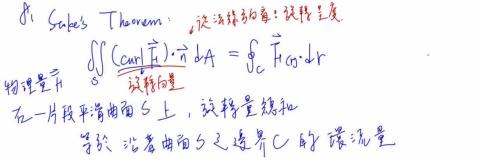 Stoke's Theorem: 從法線方向看:旋轉量度
∬_S (curl F⃗)·n⃗ dA = ∮_C F⃗(r)·dr
旋轉向量
物理量 F⃗
在一片段平滑曲面 S 上,旋轉量總和
等於 沿著曲面 S 之邊界 C 的 環流量